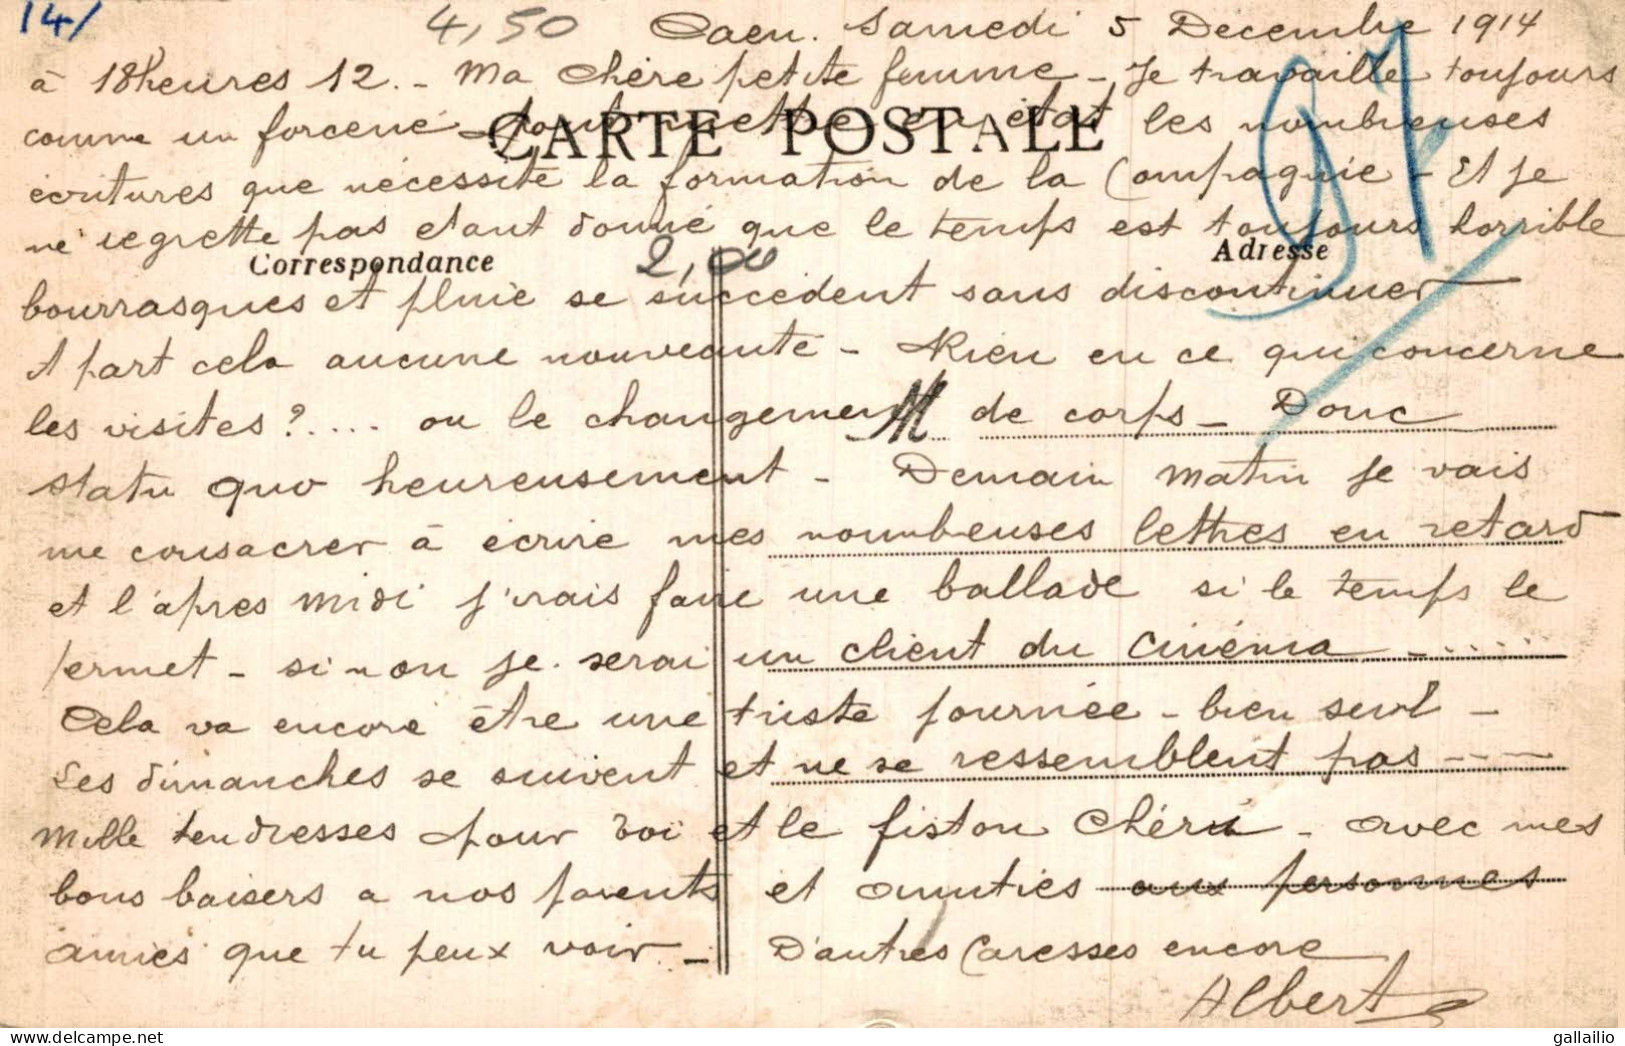 14/ 4,50 Caen. Samedi 5 Decembre 1914
à 18heures 12.- Ma chère petite femme - Je travaille toujours
97
comme un forcené pour mettre en état les nombreuses
CARTE POSTALE
écritures que nécessite la formation de la Compagnie - Et je
ne regrette pas etant donné que le temps est toujours horrible
Correspondance 2,00 Adresse
bourrasques et pluie se succedent sans discontinuer
A part cela aucune nouveauté - Rien en ce qui concerne
les visites ?.... ou le changement de corps - Donc
M
statu quo heureusement - Demain matin je vais
me consacrer à écrire mes nombreuses lettres en retard
et l'après midi j'irais faire une ballade si le temps le
permet - sinon je serai un client du cinéma - ....
Cela va encore être une triste journée - bien seul -
Les dimanches se suivent et ne se ressemblent pas ---
Mille tendresses pour toi et le fiston chéri - avec mes
bons baisers a nos parents et amitiés aux personnes
amies que tu peux voir - D'autres Caresses encore
Albert
gallailio